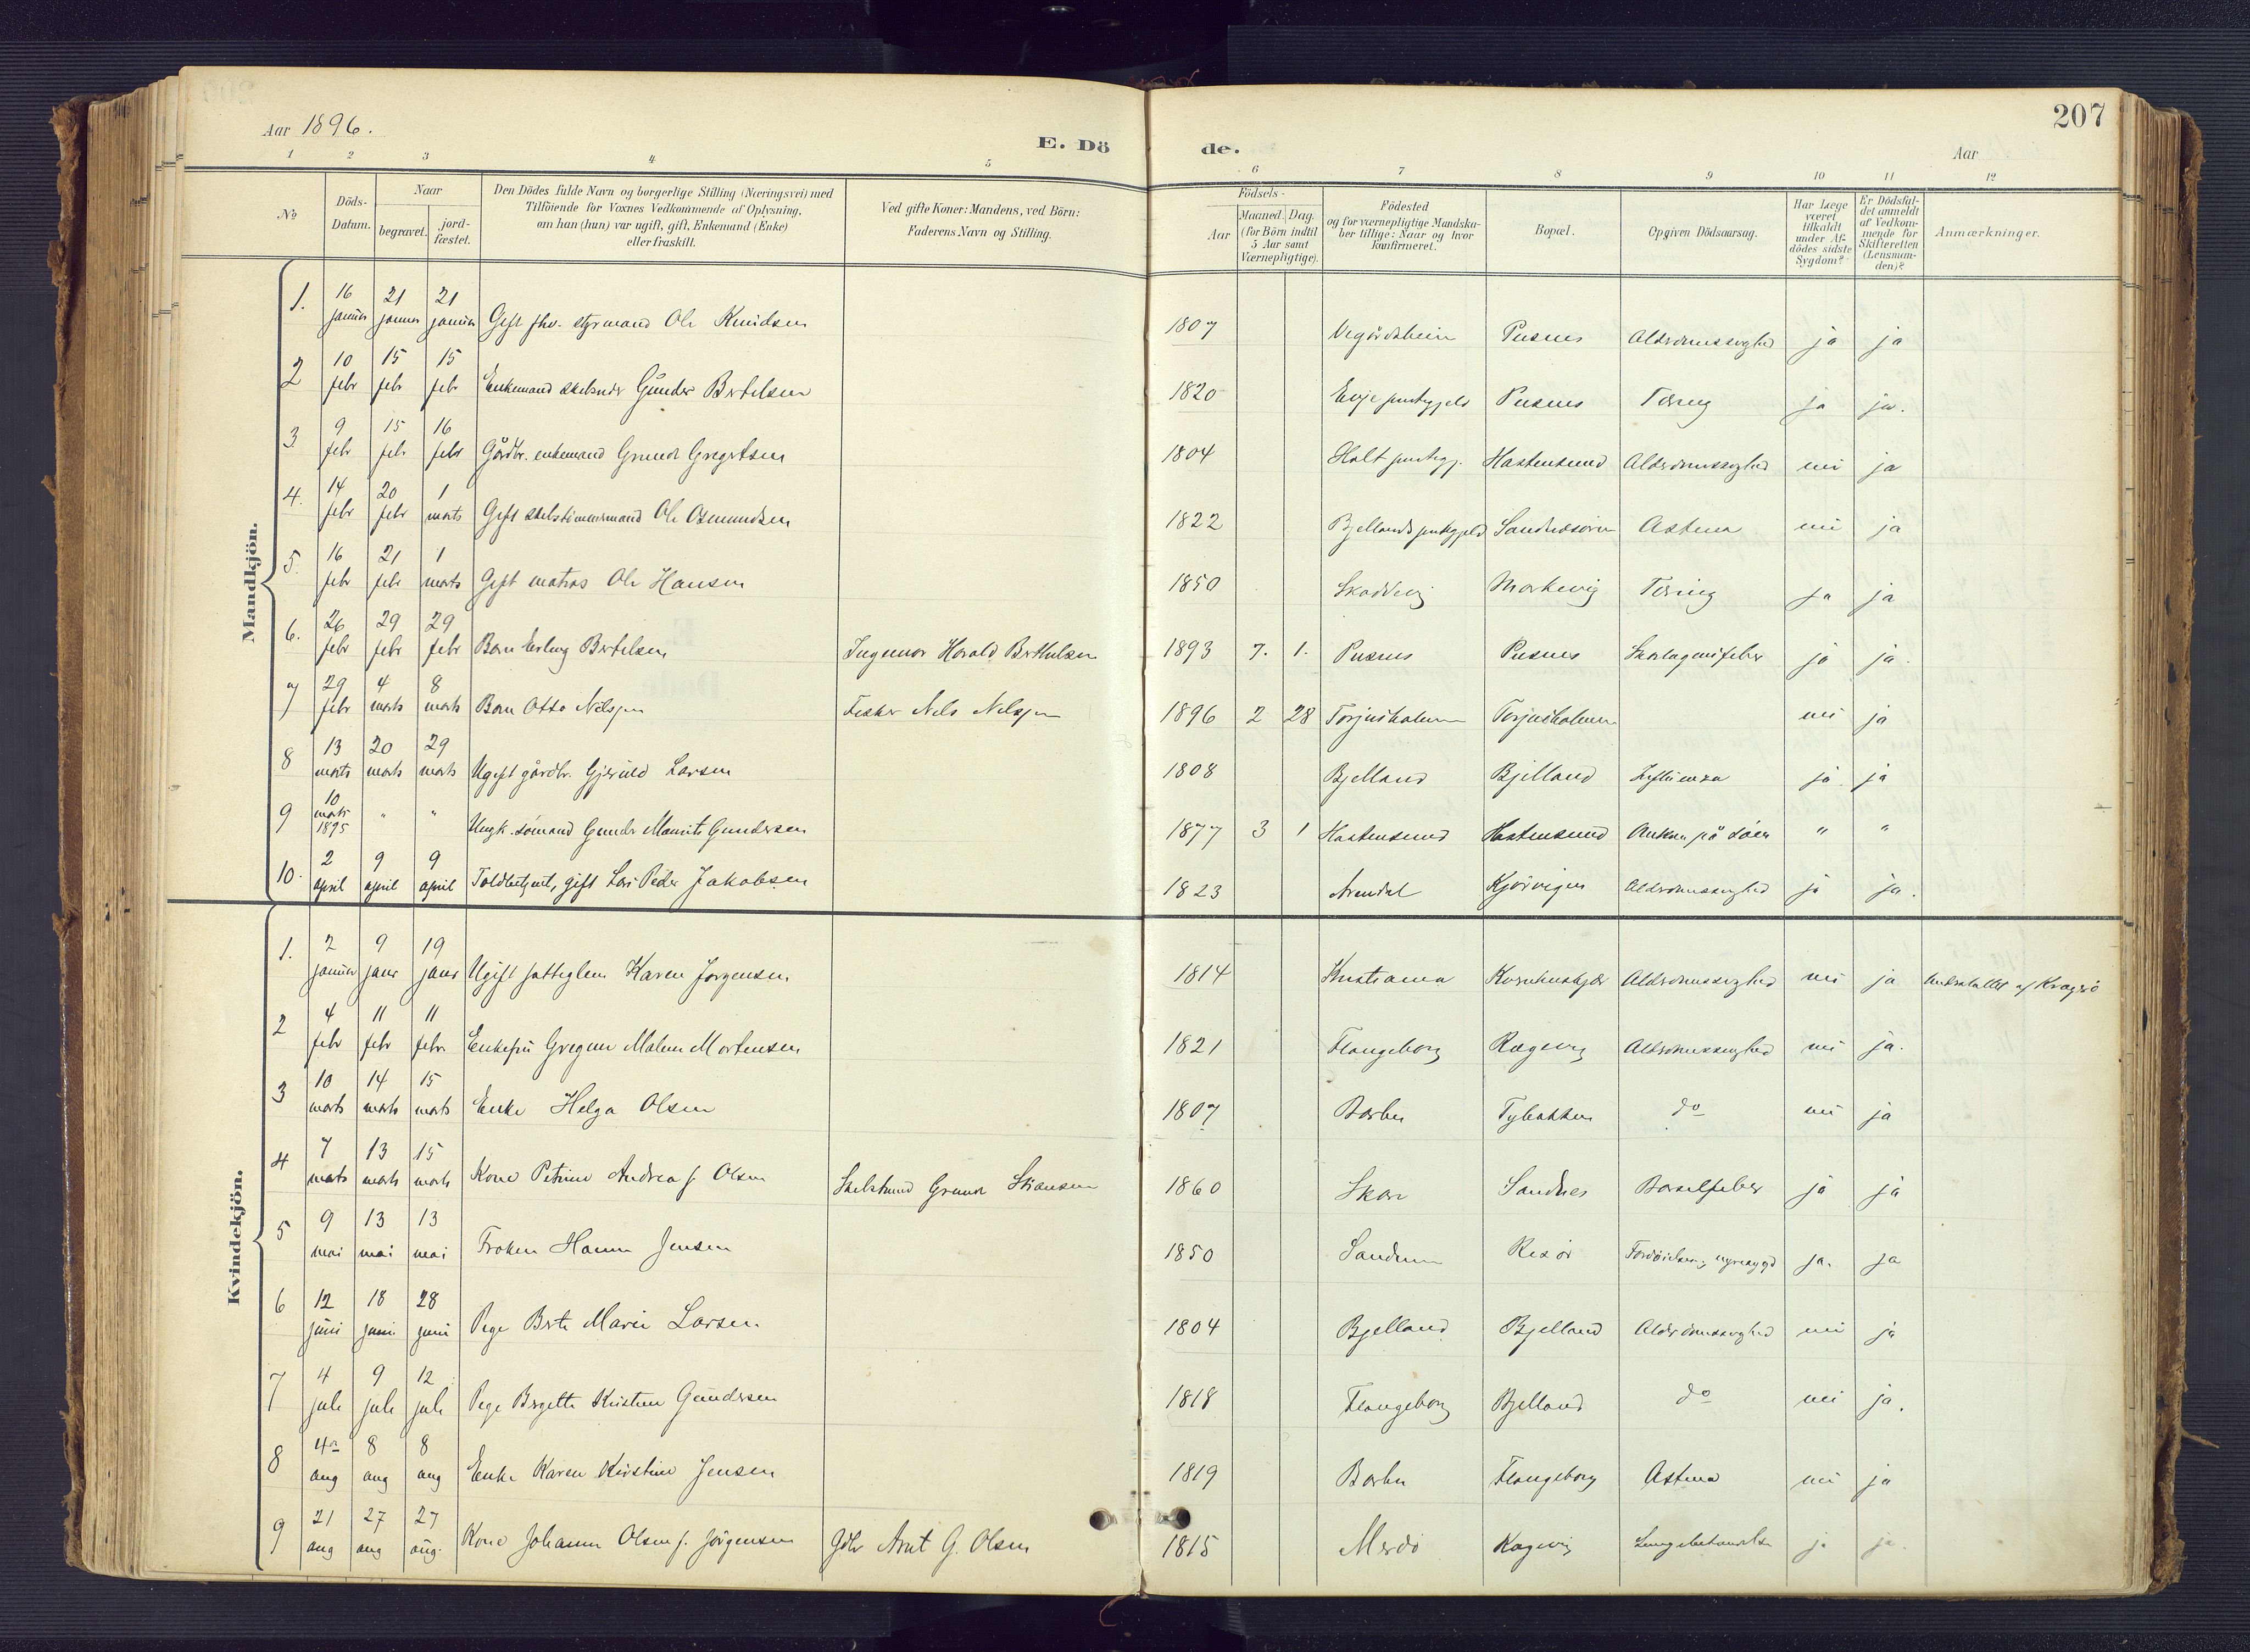 Aar 1896.
E. Dö
de.
Aar
207
1 2 3 4 5 6 7 8 9 10 11 12
No
Döds-Datum.
Naar
begravet.
jord-fæstet.
Den Dödes fulde Navn og borgerlige Stilling (Næringsvei) med
Tilföiende for Voxnes Vedkommende af Oplysning,
om han (hun) var ugift, gift, Enkemand (Enke)
eller fraskilt.
Ved gifte Koner: Mandens, ved Börn:
Faderens Navn og Stilling.
Födsels-
Aar
Maaned. Dag.
(for Börn indtil
5 Aar samt
Værnepligtige).
Födested
og for værnepligtige Mandska-
ber tillige: Naar og hvor
konfirmeret.
Bopæl.
Opgiven Dödsaarsag.
Har Læge
været
tilkaldt
under Af-
dödes sidste
Sygdom?
Er Dödsfal-
det anmeldt
af Vedkom-
mende for
Skifteretten
(Lensman-
den)?
Anmærkninger.
Mandkjön.
1. 16 januar 21 januar 21 januar Gift fhv. styrmand Ole Knudsen 1807 Vegårdsheim Pusnes Alderdomssvaghed ja ja
2 10 febr 15 febr 15 febr Enkemand Gunder Bertelsen 1820 Evje Pusnes Tæring ja ja.
3 9 febr 15 febr 16 febr Gårdbr. enkemand Gregertsen 1804 Holt Hastensund Alderdomssvaghed nei ja
4. 14 febr 20 febr 1 marts Gift skibstømmermand Ole Osmundsen 1822 Bjellands Astma nei ja
5. 16 febr 21 febr 1 marts Gift matros Ole Hansen 1850 Skaddevig Markevig Tæring ja ja
6. 26 febr 29 febr 29 febr Barn Erling Bertelsen Ingemar Harald Berthelsen 1893 7. 1. Pusnes Pusnes Skarlagensfeber ja ja.
7 29 febr 4 marts 8 marts Barn Otto Nilsen Fisker Nils Nilsen 1896 2 28 Torjusholmen Torjusholmen nei ja
8 13 marts 20 marts 29 marts Ugift gårdbr. Gjeruld Larsen 1808 Bjelland Bjelland Influenza ja. ja
9 10 marts 1895 " " Ungk. sömand Gunder Maurits Gundersen 1877 3 1 Hastensund Hastensund Omkom på söen " "
10. 2 april 9 april 9 april Toldbetjent, gift Lars Peder Jakobsen 1823 Arendal Kjörvigen Alderdomssvaghed ja ja.
Kvindekjön.
1. 2 januar 9 januar 19 januar Ugift fattiglem Karen Jørgensen 1814 Kristiania Alderdomssvaghed nei ja Understøttet af Kragerö
2 4 febr 11 febr 11 febr. Enkefru Gregine Malene Mortensen 1821 Flangeborg Rægevig Alderdomssvaghed nei ja.
3 10 marts 14 marts 15 marts Enke Helga Olsen 1807 Barbu Tybakken do nei ja
4 7 marts 13 marts 15 marts Kone Petrine Andrea f. Olsen 1860 Skare Sandnes Barselfeber ja ja
5 9 mai 13 mai 13 mai Frøken Hanne Jensen 1850 Sandum Risör nyresygd ja. ja
6 12 juni 18 juni 28 juni Pige Berte Marie Larsen 1804 Bjelland Bjelland Alderdomssvaghed nei ja
7 4 juli 9 juli 12 juli Pige Bergette Kristine Gundersen 1818 Flangeborg Bjelland do nei ja.
8 4de aug 8 aug 8 aug Enke Karen Kirstine Jensen 1819 Barbu Flangeborg Astma nei ja
9 21 aug 27 aug 27 aug. Kone Johanne Olsen f. Jörgensen Gdbr Arnt G. Olsen 1815 Merdö Rægevig Lungebetændelse ja ja.